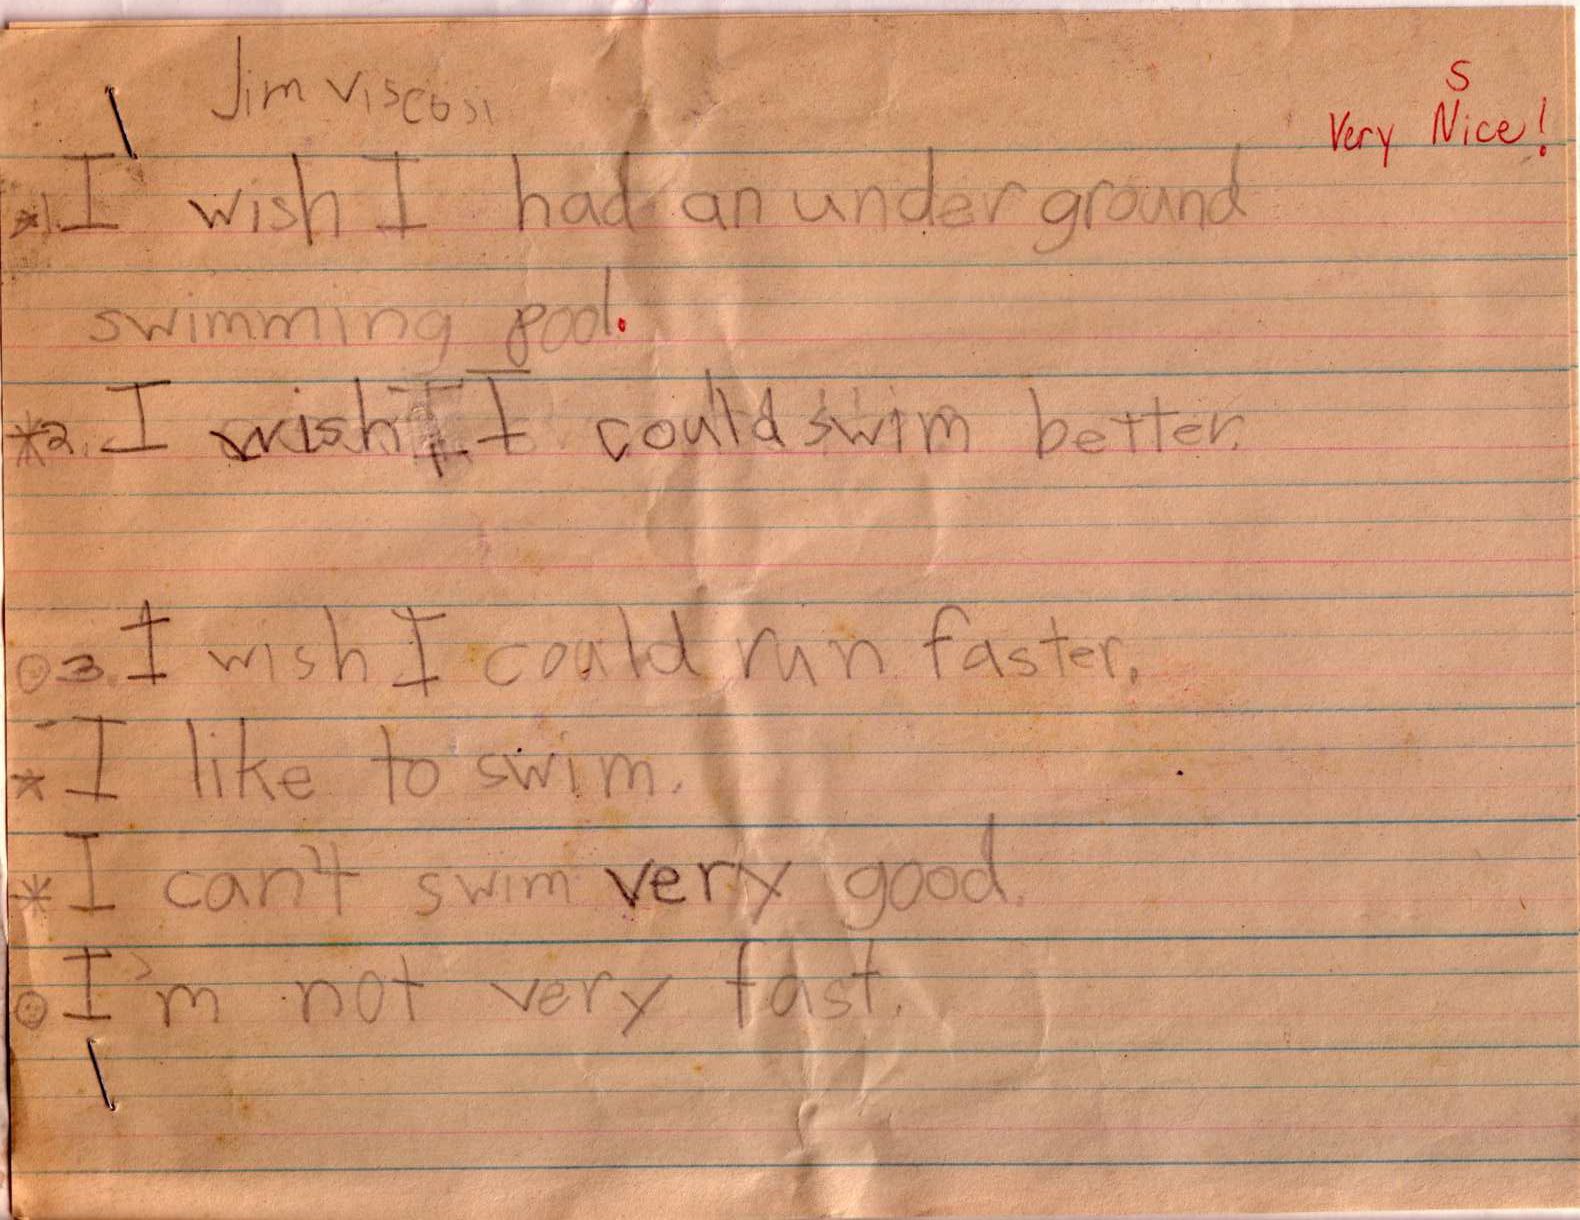 Jim Viscosi
S
Very Nice!
*1. I wish I had an underground
swimming pool.
*2. I wish I could swim better.
3. I wish I could run faster.
* I like to swim.
* I can't swim very good.
I'm not very fast.